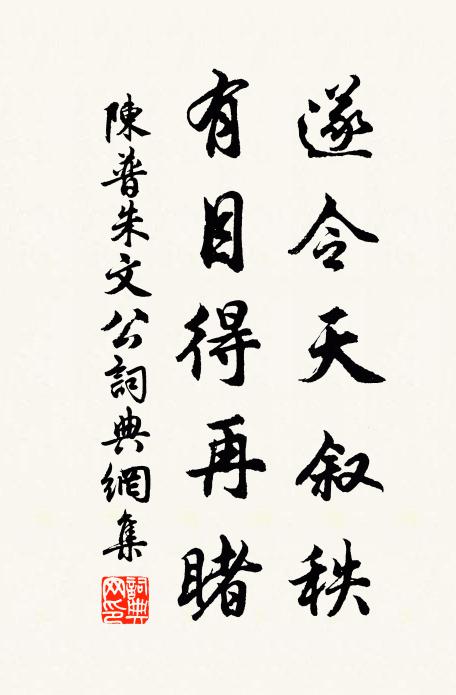 遂令天叙秩
有目得再睹
陳普朱文公詞典網集
詞典网印